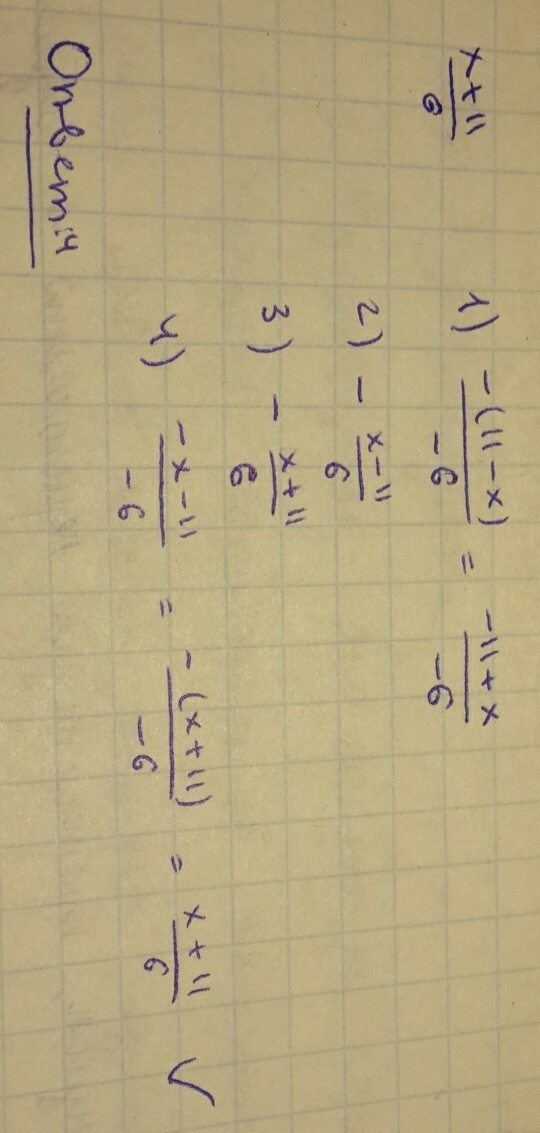 x+11/6
1) -(11-x)/-6 = -11+x/-6
2) - x-11/6
3) - x+11/6
4) -x-11/-6 = -(x+11)/-6 = x+11/6 ✓
Ответ:4